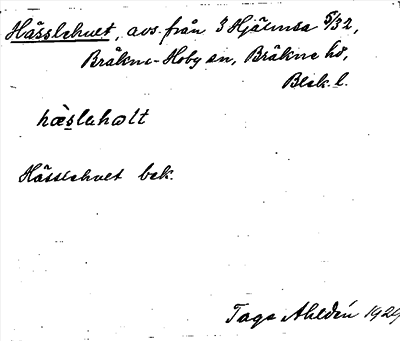 Hässlehult, avs. från 3 Hjälmsa 5/32,
Bräkne-Hoby sn, Bräkne hd,
Blek. l.
hæ̀slehølt
Hässlehult bek.
Tage Ahldén 1924